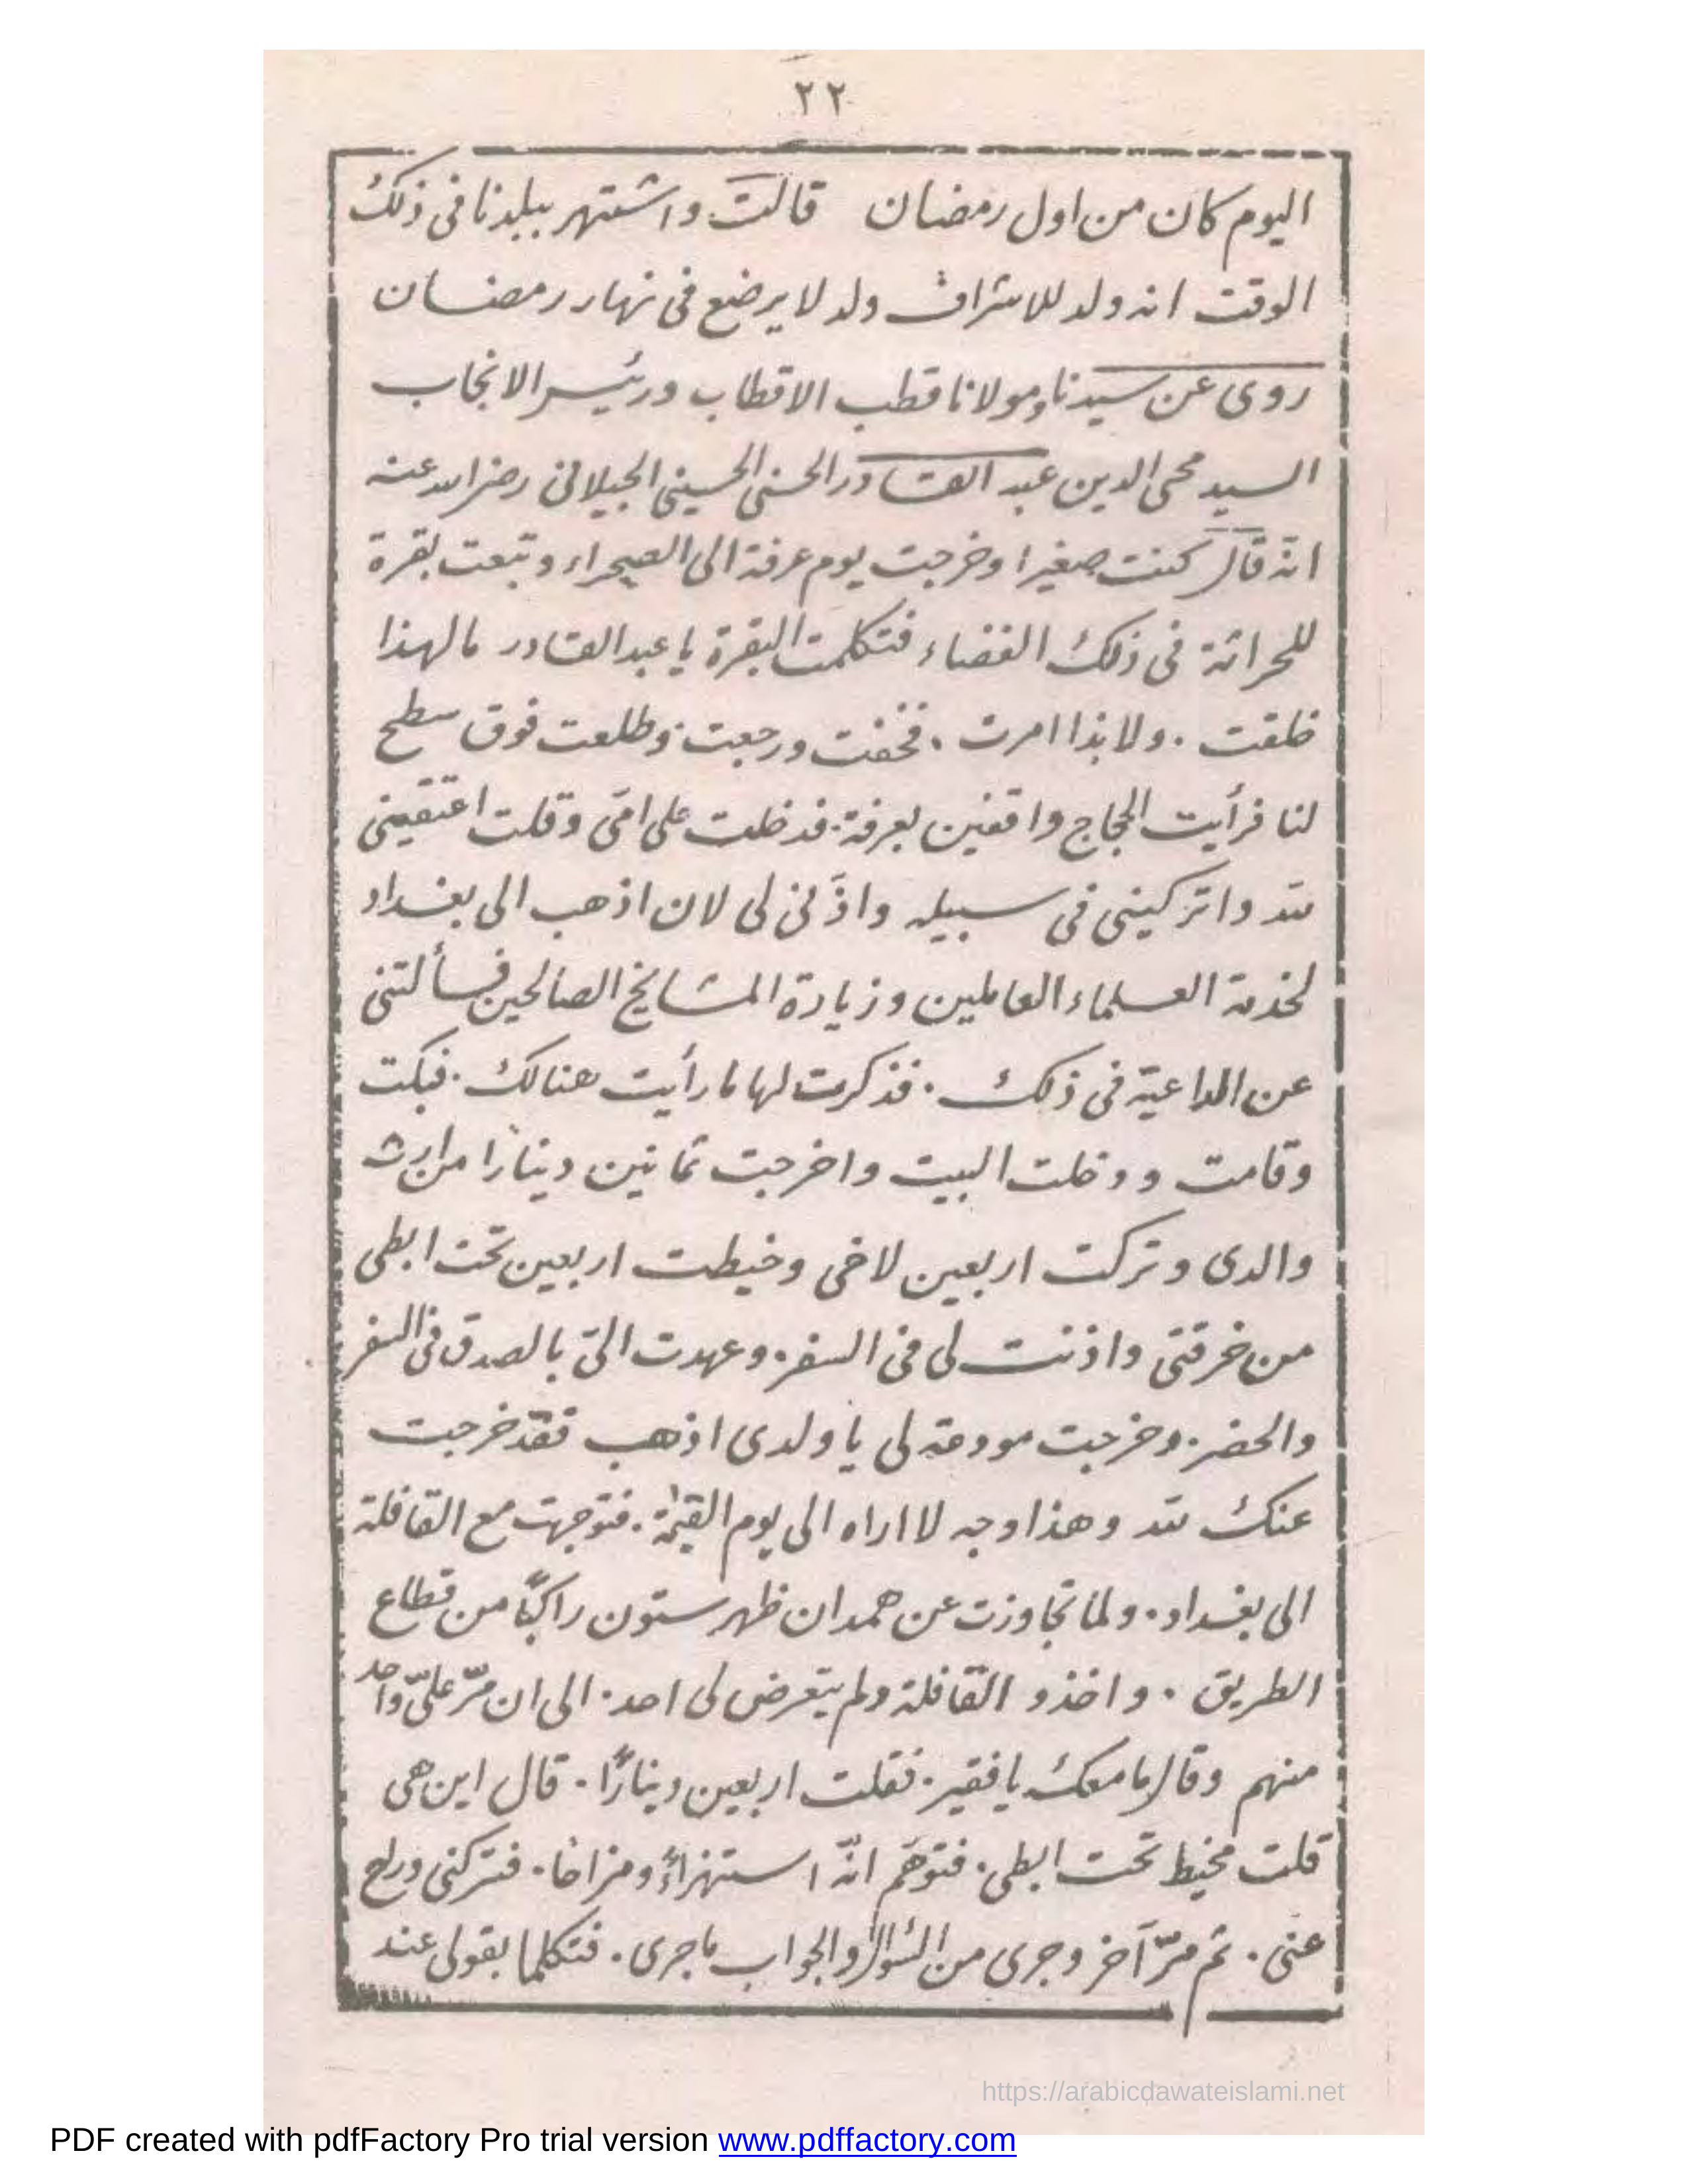 ٢٢
اليوم كان من اول رمضان قالت واشتهر ببلدنا فى ذلك
الوقت انه ولد للاشراف ولد لا يرضع فى نهار رمضان
روى عن سيدنا ومولانا قطب الاقطاب ورئيس الانجاب
السيد محى الدين عبد القادر الحسنى الحسينى الجيلانى رضى الله عنه
انه قال كنت صغيرا وخرجت يوم عرفة الى الصحراء وتبعت بقرة
للحراثة فى ذلك الفضاء فتكلمت البقرة يا عبد القادر ما لهذا
خلقت . ولا بذا امرت . فخفت ورجعت وطلعت فوق سطح
لنا فرأيت الحجاج واقفين بعرفة . فدخلت على امّى وقلت اعتقينى
لله واتركينى فى سبيله واذَنى لى لان اذهب الى بغداد
لخدمة العلماء العاملين وزيارة المشايخ الصالحين فسألتنى
عن الداعية فى ذلك . فذكرت لها ما رأيت هنالك . فبكت
وقامت ودخلت البيت واخرجت ثمانين دينارا من ارث
والدى وتركت اربعين لاخى وخيطت اربعين تحت ابطى
من خرقتى واذنت لى فى السفر . وعهدت الىّ بالصدق فى السفر
والحضر . وخرجت مودعة لى يا ولدى اذهب فقد خرجت
عنك لله وهذا وجه لا اراه الى يوم القيمة . فتوجهت مع القافلة
الى بغداد . ولما تجاوزت عن همدان ظهر ستون راكبًا من قطاع
الطريق . واخذو القافلة ولم يتعرض لى احد . الى ان مرّ علىّ واحد
منهم وقال ما معك يا فقير . فقلت اربعين دينارًا . قال اين هى
قلت مخيط تحت ابطى . فتوهّم انّه استهزاءً ومزاحا . فتركنى وراح
عنى . ثم مرّ آخر وجرى من السّؤال والجواب ما جرى . فتكلما بقولى عند
https://arabicdawateislami.net
PDF created with pdfFactory Pro trial version www.pdffactory.com